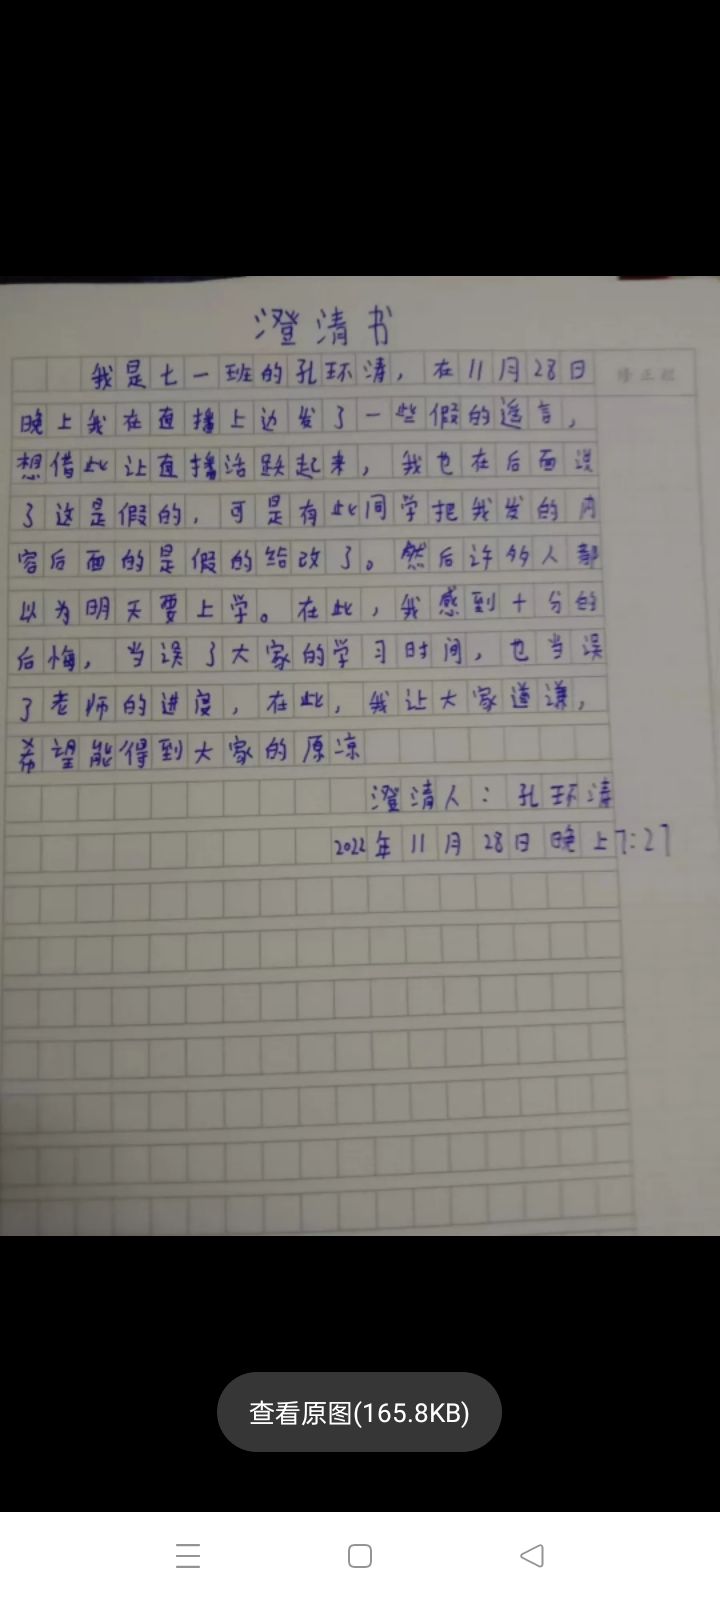 澄清书
我是七一班的孔环清，在11月28日
晚上我在直播上边发了一些假的遥言，
想借此让直播活跃起来，我也在后面说
了这是假的，可是有些同学把我发的内
容后面的是假的给改了。然后许多人都
以为明天要上学。在此，我感到十分的
后悔，当误了大家的学习时间，也当误
了老师的进度，在此，我让大家道谦，
希望能得到大家的原凉
澄清人：孔环清
2022年11月28日晚上7:27
查看原图(165.8KB)